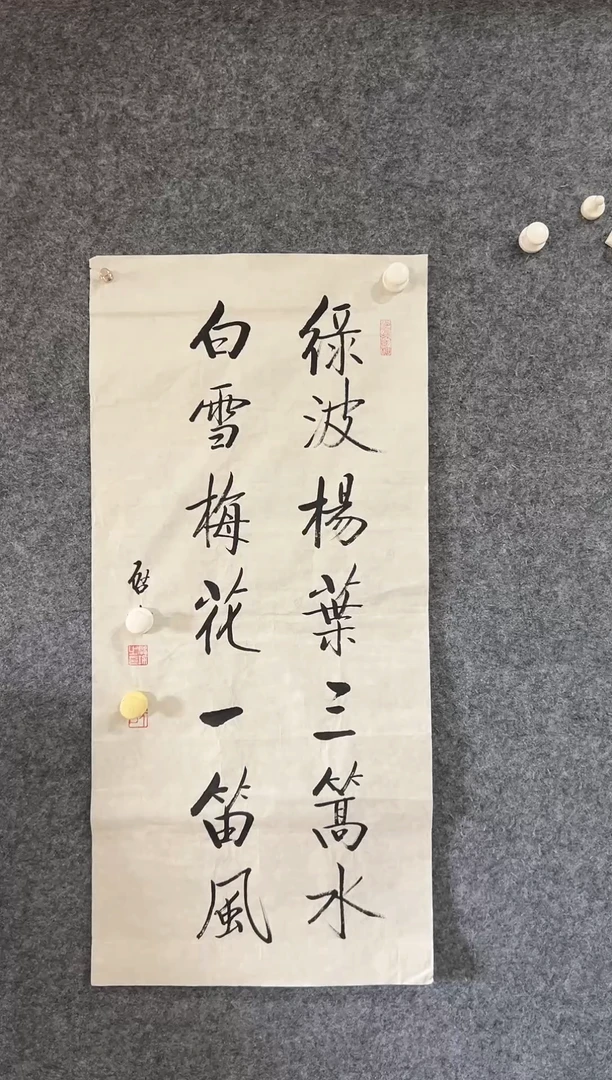 綠波楊葉三篙水
白雪梅花一笛風